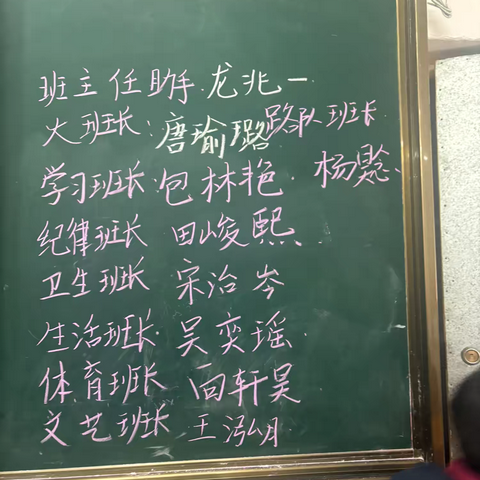 班主任助手 龙兆一
大班长：唐瑜璐 路队班长
学习班长 包林艳 杨
纪律班长 田峻熙
卫生班长 宋治岑
生活班长 吴奕瑶
体育班长 向轩昊
文艺班长 王泓月